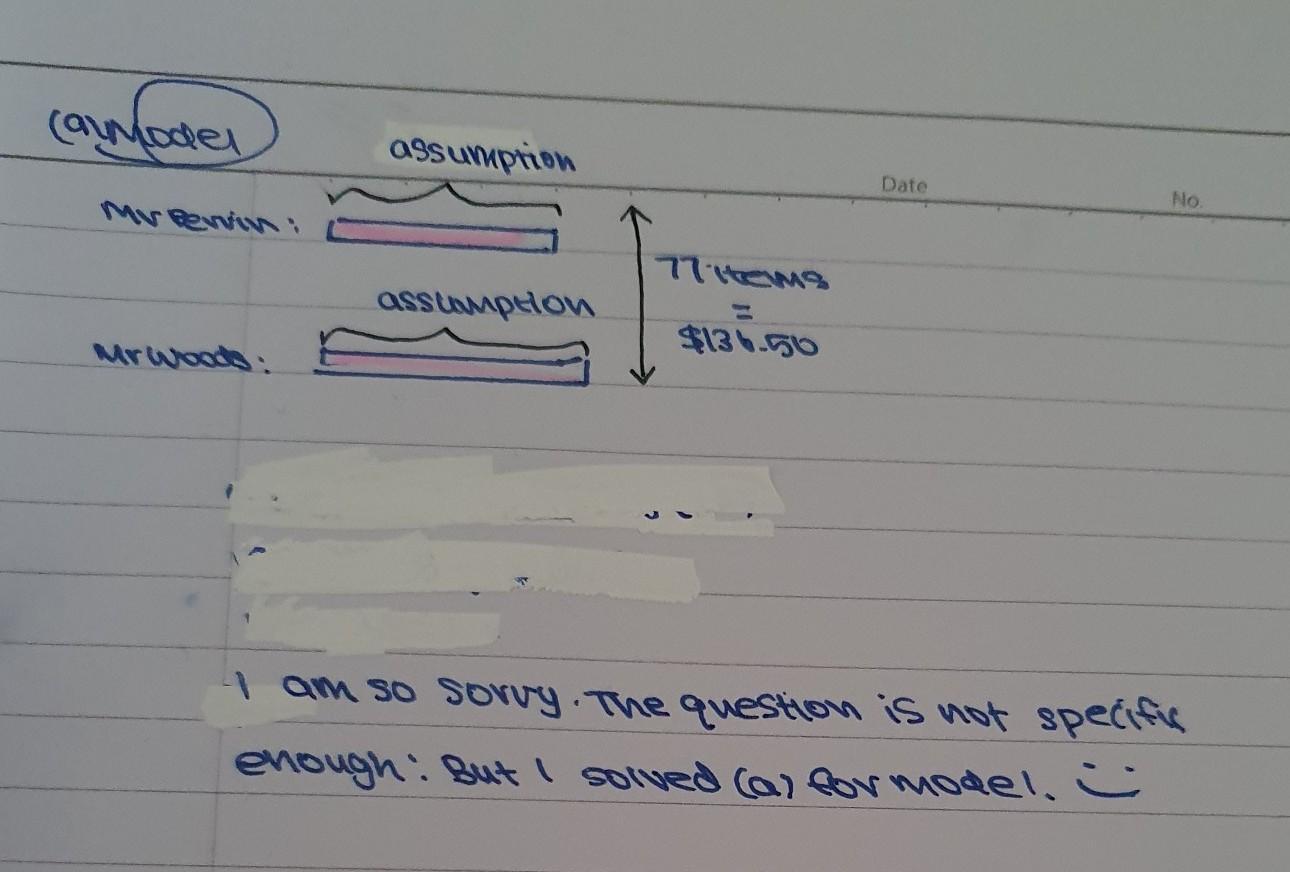 (a) Model
assumption
Date
No.
Mr
assumption
77 items
=
$136.50
Mr Woods:
I am so sorry. The question is not specific
enough: But I solved (a) for model. :)